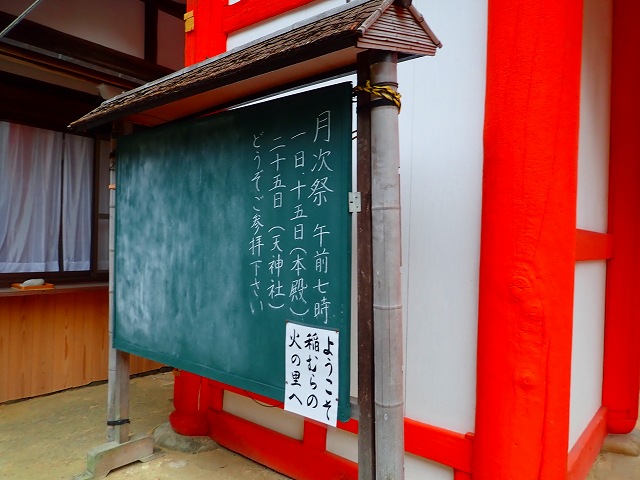 月次祭 午前七時
一日、十五日(本殿)
二十五日(天神社)
どうぞご参拝下さい
ようこそ
稲むらの
火の里へ